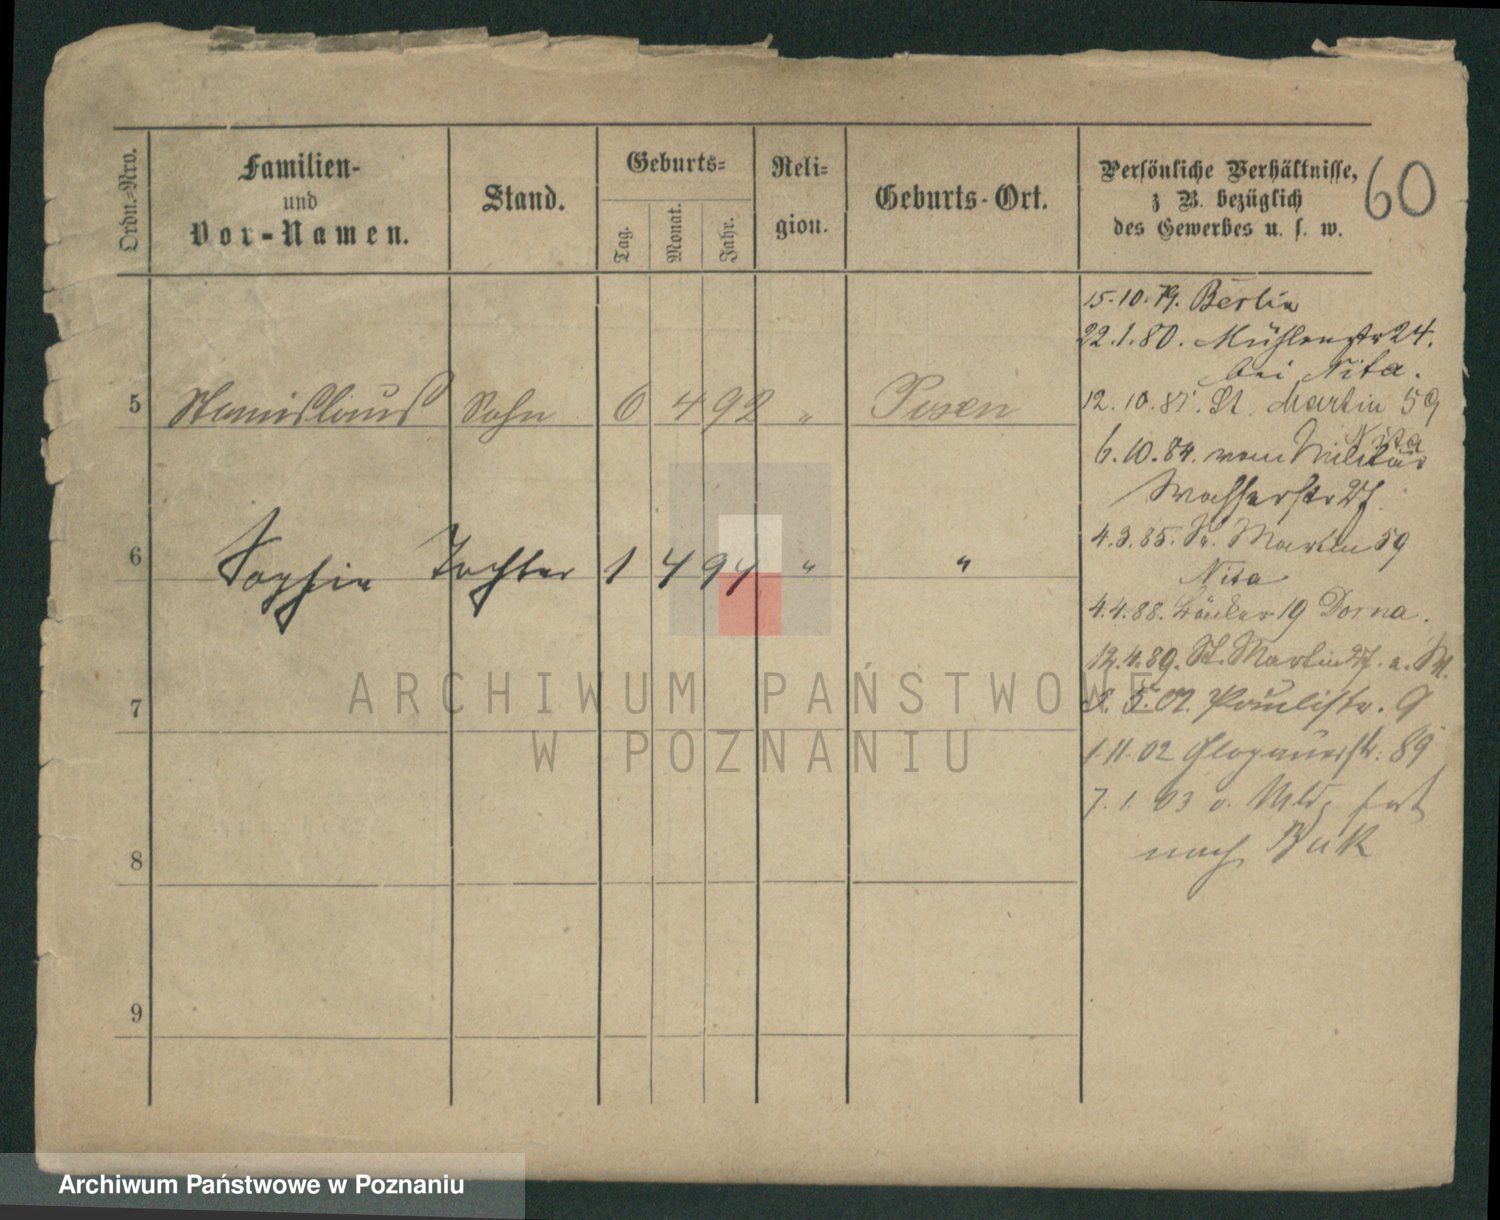 Ordn.-Nro.
Familien-
und
Vor-Namen.
Stand.
Geburts-
Tag.
Monat.
Jahr.
Reli-
gion.
Geburts-Ort.
Persönliche Verhältnisse,
z B. bezüglich
des Gewerbes u. s. w.
60
15.10.79. Berlin
22.1.80. Mühlenstr 24.
bei Nita.
5 Stanislaus Sohn 6 4 92 " Posen
12.10.81. St. Martin 59
Nita
6.10.84. vom Militär
Wasserstr 27
4.3.85. St. Martin 59
6 Sophie Tochter 1 4 94 " "
Nita
4.4.88. 19 Dorna.
12.4.89. St. Martin 27. a. M.
7
5. 02. Paulistr. 9
1.11.02 Glogauerstr. 89
7. 1. 03 o. Mldg fort
nach Buk
8
9
ARCHIWUM PAŃSTWOWE
W POZNANIU
Archiwum Państwowe w Poznaniu